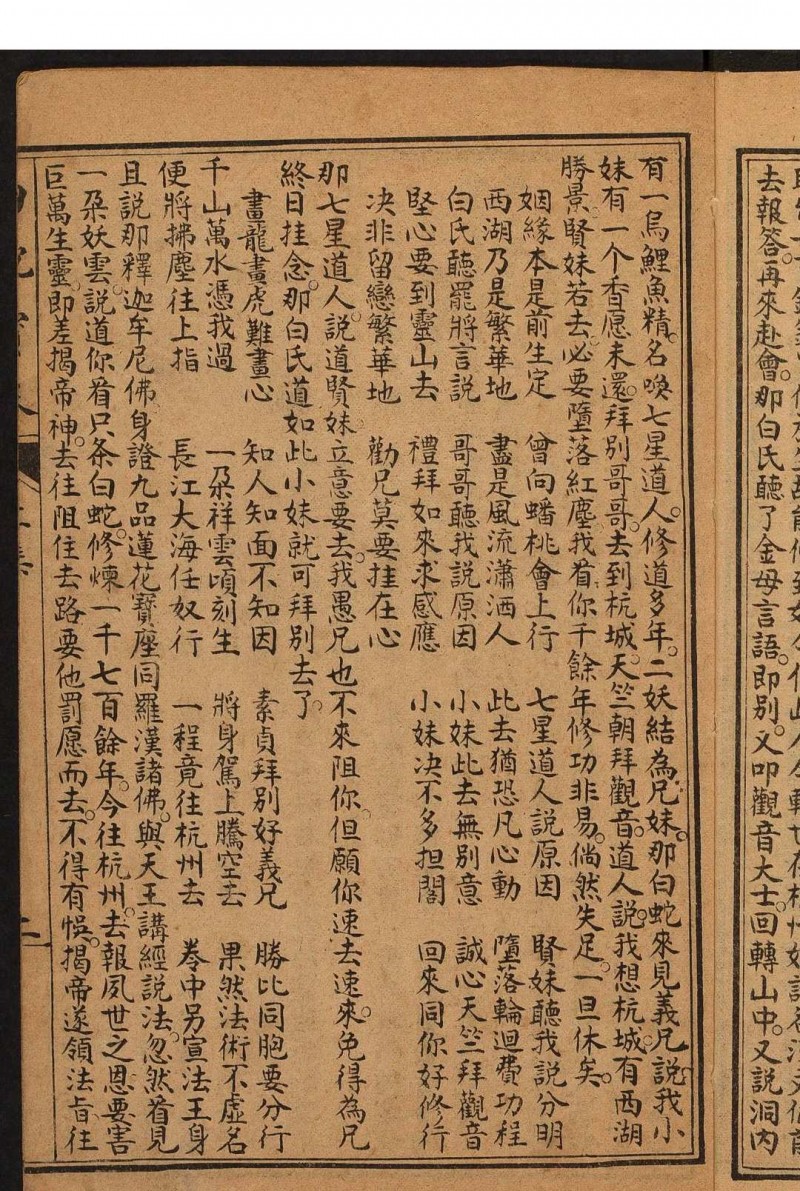 去報答。再來赴會。那白氏聽了金母言語。即別。又叩觀音大士。回轉山中。又說洞內
有一烏鯉魚精。名喚七星道人。修道多年。二妖結為兄妹。那白蛇來見義兄。說我小
妹有一个香愿未還。拜別哥哥。去到杭城。天竺朝拜觀音。道人說。我想杭城。有西湖
勝景。賢妹若去。必要墮落紅塵。我看你千餘年修功非易。倘然失足。一旦休矣。
姻緣本是前生定 曾向蟠桃會上行 七星道人說原因 賢妹聽我說分明
西湖乃是繁華地 盡是風流瀟洒人 此去猶恐凡心動 墮落輪迴費功程
白氏聽罷將言說 哥哥聽我說原因 小妹此去無別意 誠心天竺拜觀音
堅心要到靈山去 禮拜如來求感應 小妹决不多担閣 回來同你好修行
决非留戀繁華地 勸兄莫要挂在心
那七星道人。說道賢妹立意要去。我愚兄也不來阻你。但願你速去速來。免得為兄
終日挂念。那白氏道如此小妹就可拜別去了。
畫龍畫虎難畫心 知人知面不知因 素貞拜別好義兄 勝比同胞要分行
千山萬水憑我過 一朶祥雲頃刻生 將身駕上騰空去 果然法術不虛名
便將拂塵往上指 長江大海任奴行 一程竟往杭州去 卷中另宣法王身
且說那釋迦牟尼佛身證九品蓮花寶座。同羅漢諸佛。與天王講經說法。忽然看見
一朶妖雲。說道你看只条白蛇。修煉一千七百餘年。今往杭州。去報夙世之恩。要害
巨萬生靈。即差揭帝神。去往阻住去路。要他罰愿而去。不得有悞。揭帝遂領法旨往
二